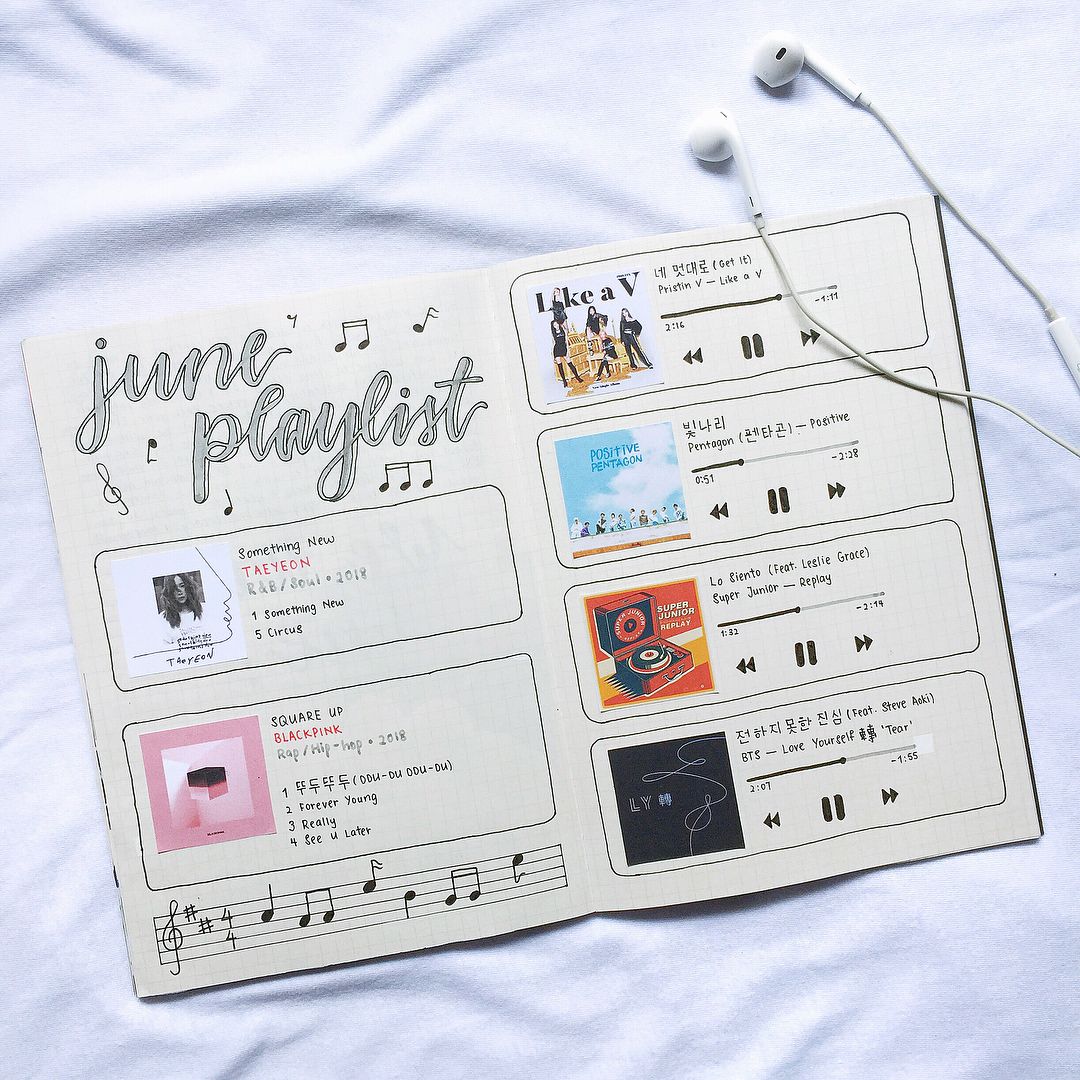 june
playlist
TAEYEON
Something New
TAEYEON
R&B/Soul • 2018
1 Something New
5 Circus
BLACKPINK
SQUARE UP
BLACKPINK
Rap/Hip-hop • 2018
1 뚜두뚜두 (DDU-DU DDU-DU)
2 Forever Young
3 Really
4 See U Later
4
4
PRISTIN V
Like a V
네 멋대로 (Get It)
Pristin V — Like a V
2:16
-1:11
POSITIVE
PENTAGON
빛나리
Pentagon (펜타곤) — Positive
0:51
-2:28
SUPER JUNIOR
SUPER
JUNIOR
REPLAY
Lo Siento (Feat. Leslie Grace)
Super Junior — Replay
1:32
-2:14
LY 轉
전하지 못한 진심 (Feat. Steve Aoki)
BTS — Love Yourself 轉 'Tear'
2:07
-1:55